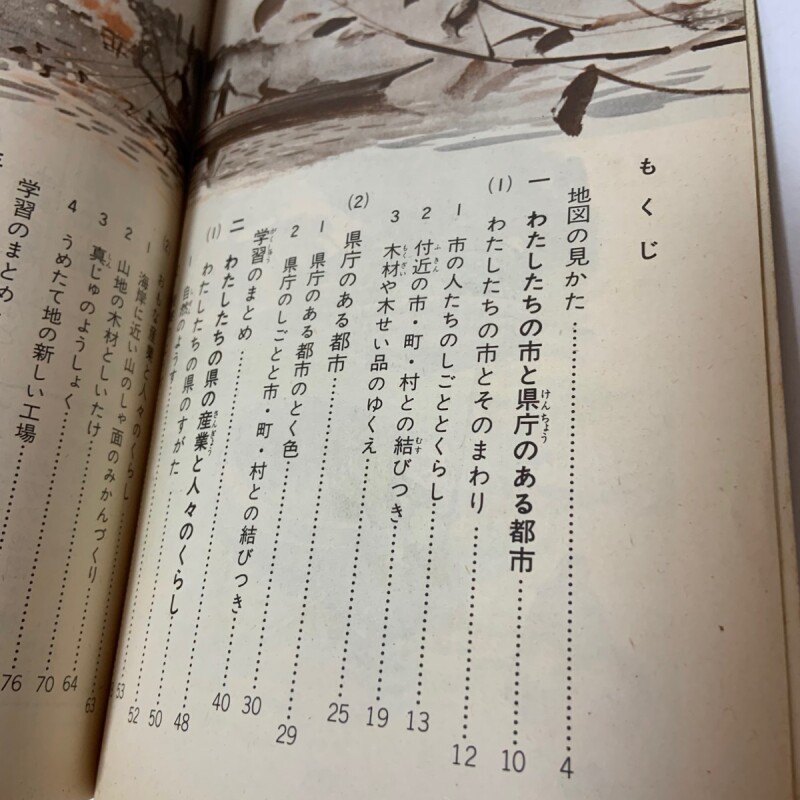 もくじ
地図の見かた 4
一 わたしたちの市と県庁のある都市 10
(1) わたしたちの市とそのまわり 12
1 市の人たちのしごととくらし 13
2 付近の市・町・村との結びつき 19
3 木材や木せい品のゆくえ 25
(2) 県庁のある都市 29
1 県庁のある都市のとく色 30
2 県庁のしごとと市・町・村との結びつき 40
学習のまとめ 48
二 わたしたちの県の産業と人々のくらし 50
(1) わたしたちの県のすがた 52
1 自然のようす 53
(2) おもな産業と人々のくらし
1 海岸に近い山のしゃ面のみかんづくり
2 山地の木材としいたけ 63
3 真じゅのようしょく 64
4 うめたて地の新しい工場 70
学習のまとめ 76